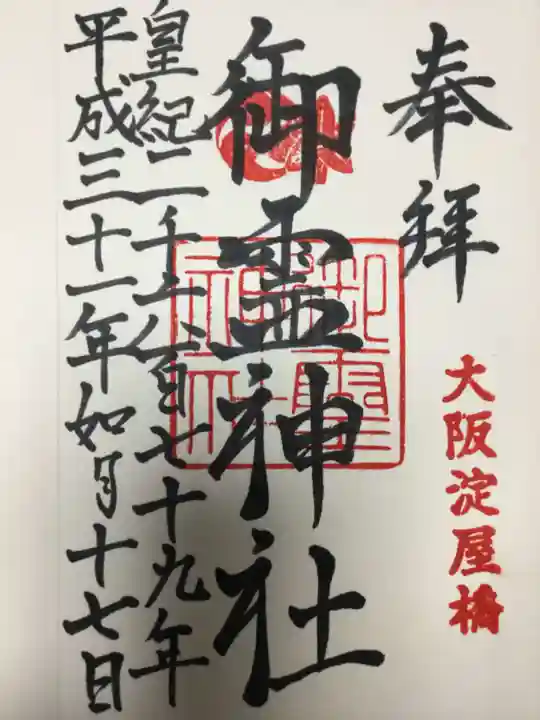 奉拝
大阪淀屋橋
御霊神社
御霊神社
皇紀二千六百七十九年
平成三十一年如月十七日